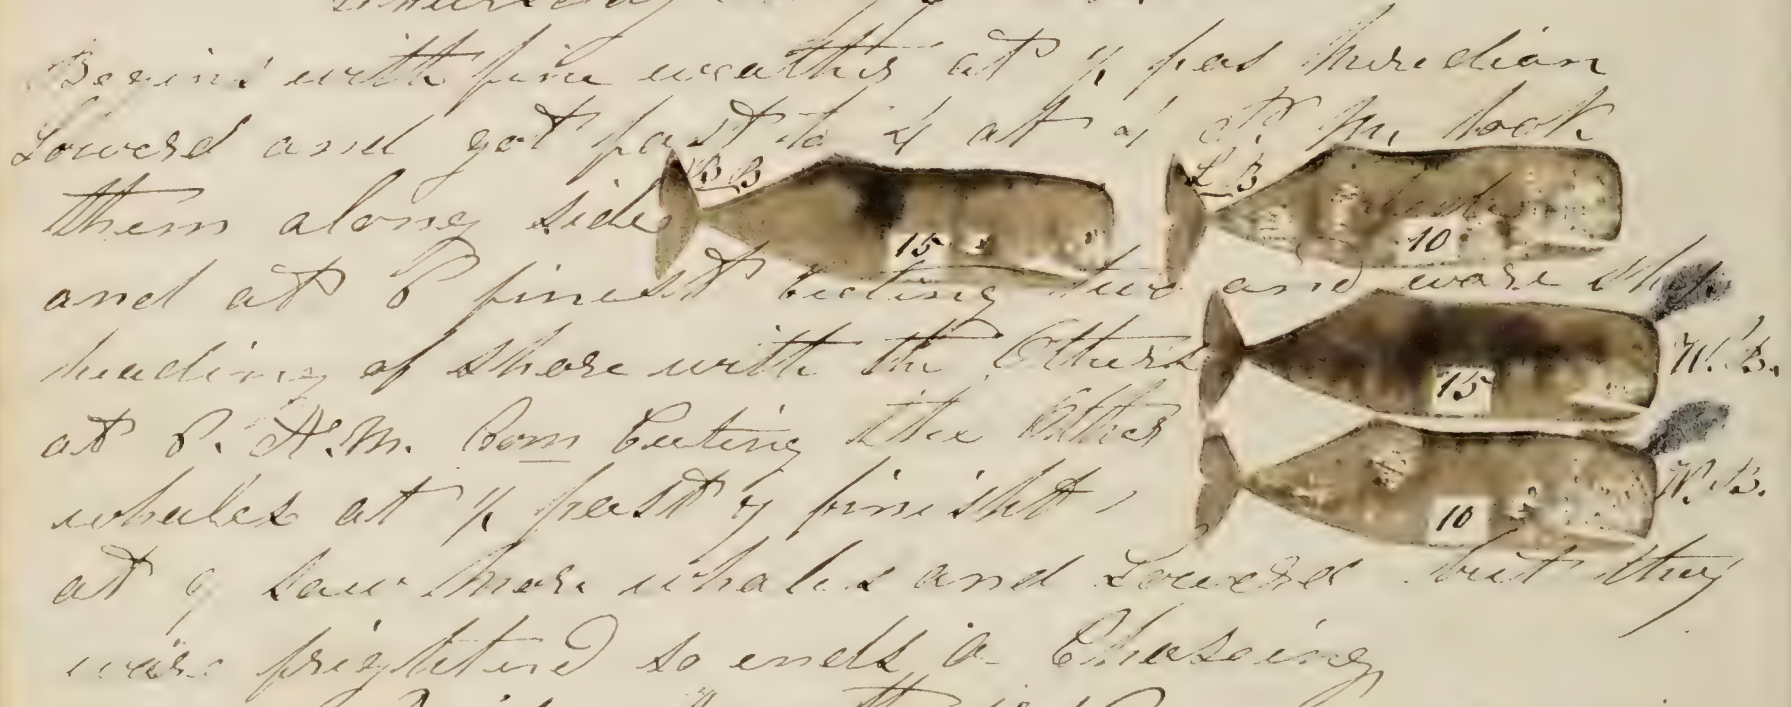 Begins with fine weather at ½ pas Meridian
Lowerd and got fast to 4 at 4 P. M. took
them along side
B B
15
L B
10
and at 8 finest cuting two and ware ship
heading of shore with the Others
15
W. B.
at 8. A.M. Com Cuting the Other
10
W. B.
whales at ½ past 9 finisht
at 9 saw more whales and Lowerd but they
ware frightend so ends a Chaseing